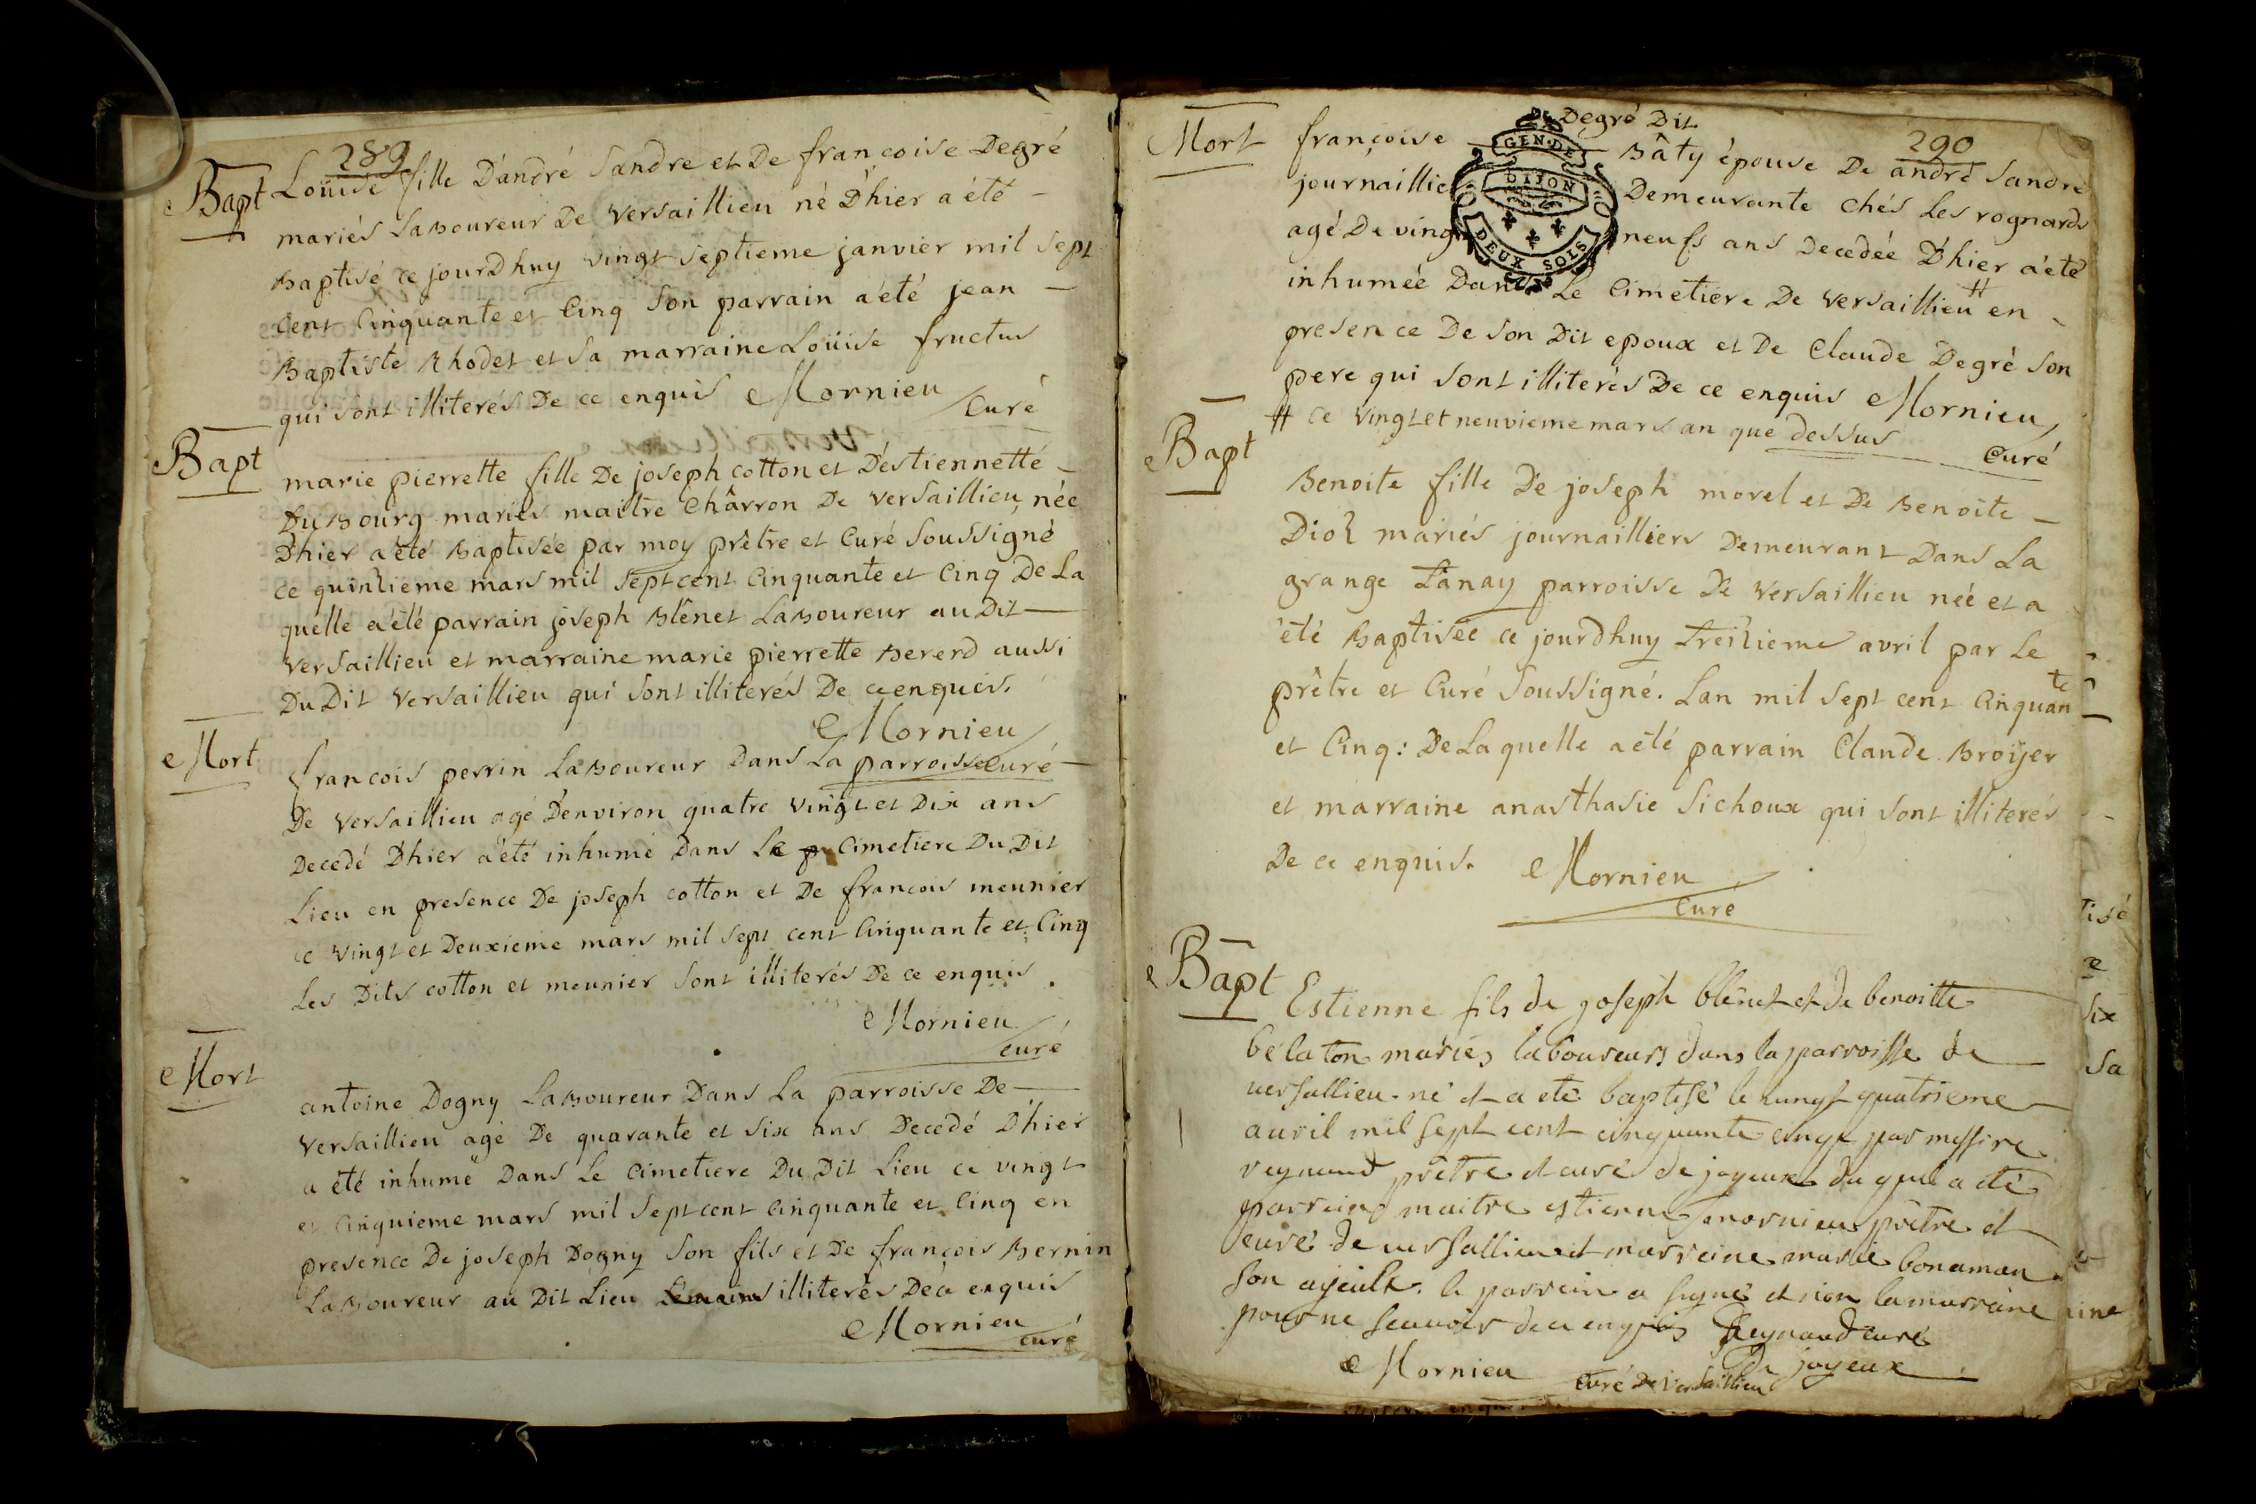 289
Bapt Loüise fille D'andré Sandre et De françoise Degré
mariés Laboureur De Versaillieu né D'hier a été
Baptisé ce jourDhuy vingt septieme janvier mil sept
cent Cinquante et Cinq Son parrain a été jean
Baptiste Rhodet et Sa marraine Loüise fructus
qui sont illiterés De ce enquis Mornieu
Curé
Bapt
marie pierrette fille De joseph cotton et D'éstiennette
Dubourg mariés maitre Chârron De Versaillieu, née
D'hier a été Baptisée par moy prêtre et Curé Soussigné
ce quinzieme mars mil sept cent Cinquante et Cinq De La
quelle a été parrain joseph Blênet Laboureur au Dit
Versaillieu et marraine marie pierrette Bererd aussi
Du Dit Versaillieu qui sont illiterés De ce enquis.
Mornieu
Curé
Mort
francois perrin Laboureur Dans La parroisse
De Versaillieu agé D'environ quatre vingt et Dix ans
Decedé D'hier a été inhumé Dans Le cimetiere Du Dit
Lieu en presence De joseph cotton et De francois meunier
ce vingt et Deuxieme mars mil sept cent Cinquante et Cinq
Les Dits cotton et meunier sont illiterés De ce enquis
Mornieu
curé
Mort
antoine Dogny Laboureur Dans La parroisse De
Versaillieu agé De quarante et six ans Decedé D'hier
a été inhumé Dans Le Cimetiere Du Dit Lieu ce vingt
et Cinquieme mars mil sept cent Cinquante et Cinq en
presence De joseph Dogny Son fils et De françois Bernin
Laboureur au Dit Lieu illiterés De ce enquis
Mornieu
curé
290
Degré Dit
Mort françoise Bâty épouse De andré Sandre
GEN.DE
DIJON
DEUX SOLS
journaillie Demeurante chés Les rognards
agé De vingt neufs ans Decedée D'hier a été
inhumée Dans Le Cimetiere De Versaillieu # en
presence De Son Dit epoux et De Claude Degré Son
pere qui sont illiterés De ce enquis Mornieu
# ce vingt et neuvieme mars an que dessus Curé
Bapt
Benoite fille De joseph morel et De Benoite
Dioz mariés journailliers Demeurant Dans La
grange Tanay parroisse De Versaillieu née et a
été Baptisée ce jourdhuy treizieme avril par Le
prêtre et Curé Soussigné. Lan mil sept cent Cinquante
et Cinq: De La quelle a été parrain Claude Broÿer
et marraine anasthasie Sichoux qui sont illiterés
De ce enquis. Mornieu
Curé
Bapt
Estienne fils de joseph blênet et de benoitte
bélaton mariés laboureurs dans la parroisse de
versallieu né et a eté baptisé le vingt quatrieme
avril mil sept cent cinquante cinqz par messire
reynaud prêtre et curé de joyeux du quel a eté
parrain maitre estienne mornieu prêtre et
curé de versallieu et marreine marie bonaman
son ayeulle. le parrein a signé et non la marreine
pour ne scauoir de ce enquis Reynaud curé
de joyeux
Mornieu curé De Versaillieu
tisé
ce
six
Sa
aine